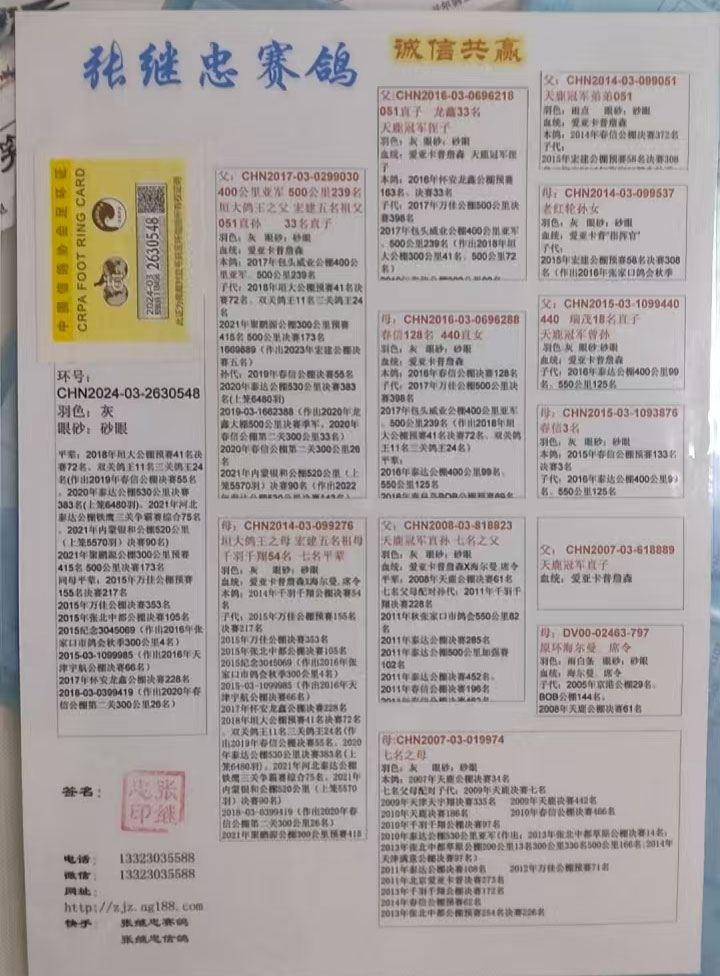 张继忠赛鸽
诚信共赢
中国信鸽协会足环证
CRPA FOOT RING CARD
2024-03
2630548
环号：
CHN2024-03-2630548
羽色：灰
眼砂：砂眼
平辈：2018年坦大公棚预赛41名决
赛72名、双关鸽王11名三关鸽王24
名(作出2019年春信公棚决赛55名
、2020年泰达公棚530公里决赛
383名(上笼6480羽)、2021年河北
泰达公棚铁鹰三关争霸赛综合75名
、2021年内蒙银和公棚520公里
（上笼5570羽）决赛90名)
2021年聚鹏源公棚300公里预赛
415名 500公里决赛173名
同母平辈：2015年万佳公棚预赛
155名决赛217名
2015年万佳公棚决赛353名
2015年张北中都公棚决赛105名
2015纪念3045069（作出2016年张
家口市鸽会秋季300公里4名）
2015-03-1099985（作出2016年天
津宇航公棚决赛66名）
2017年怀安龙鑫公棚决赛228名
2018-03-0399419（作出2020年春
信公棚第二关300公里26名）
签名：
张继忠印
电话： 13323035588
微信： 13323035588
网址：
http://zjz.ag188.com
快手： 张继忠赛鸽
张继忠信鸽
父：CHN2017-03-0299030
400公里亚军 500公里239名
坦大鸽王之父 宏建五名祖父
051直孙 33名直子
羽色：灰 眼砂：砂眼
血统：爱亚卡普詹森
本鸽：2017年包头威业公棚400公
里亚军、500公里239名
子代：2018年坦大公棚预赛41名决
赛72名、双关鸽王11名三关鸽王24
名
2021年聚鹏源公棚300公里预赛
415名 500公里决赛173名
1609889（作出2023年宏建公棚决
赛五名）
孙代：2019年春信公棚决赛55名
2020年泰达公棚530公里决赛383
名(上笼6480羽)
2019-03-1662388（作出2020年龙
鑫大棚500公里决赛季军、2020年
春信公棚第二关300公里33名）
2020年春信公棚第二关300公里26
名
2021年内蒙银和公棚520公里（上
笼5570羽）决赛90名（作出2022
母：CHN2014-03-099276
坦大鸽王之母 宏建五名祖母
千羽千翔54名 七名平辈
羽色：灰 眼砂：砂眼
血统：爱亚卡普詹森X海尔曼.席令
本鸽：2014年千羽千翔公棚决赛54
名
子代：2015年万佳公棚预赛155名
决赛217名
2015年万佳公棚决赛353名
2015年张北中都公棚决赛105名
2015纪念3045069（作出2016年张
家口市鸽会秋季300公里4名）
2015-03-1099985（作出2016年天
津宇航公棚决赛66名）
2017年怀安龙鑫公棚决赛228名
2018年坦大公棚预赛41名决赛72名
、双关鸽王11名三关鸽王24名(作
出2019年春信公棚决赛55名、2020
年泰达公棚530公里决赛383名(上
笼6480羽)、2021年河北泰达公棚
铁鹰三关争霸赛综合75名、2021年
内蒙银和公棚520公里（上笼5570
羽）决赛90名)
2018-03-0399419（作出2020年春
信公棚第二关300公里26名）
2021年聚鹏源公棚300公里预赛415
父:CHN2016-03-0696218
051直子 龙鑫33名
天鹿冠军侄子
羽色：灰 眼砂：砂眼
血统：爱亚卡普詹森 天鹿冠军侄
子
本鸽：2016年怀安龙鑫公棚预赛
163名、决赛33名
子代：2017年万佳公棚500公里决
赛398名
2017年包头威业公棚400公里亚军
、500公里239名（作出2018年坦
大公棚300公里41名、500公里72
名）
母：CHN2016-03-0696288
春信128名 440直女
羽色：灰 眼砂：砂眼
血统：爱亚卡普詹森
本鸽：2016年春信公棚决赛128名
子代：2017年万佳公棚500公里决
赛398名
2017年包头威业公棚400公里亚军
、500公里239名（作出2018年坦
大公棚预赛41名决赛72名、双关鸽
王11名三关鸽王24名）
平辈：
2016年泰达公棚400公里99名、
550公里125名
父：CHN2008-03-818823
天鹿冠军真孙 七名之父
羽色：灰 眼砂：砂眼
血统：爱亚卡普詹森X海尔曼.席令
平辈：2008年天鹿公棚决赛61名
七名父母配对孙代：2011年千羽千
翔决赛228名
2011年秋张家口市鸽会550公里82
名
2011年泰达公棚决赛285名
2011年泰达公棚500公里加强赛
102名
2011年泰达公棚决赛452名、
2011年春信公棚决赛196名
母:CHN2007-03-019974
七名之母
羽色：灰 眼砂：砂眼
本鸽：2007年天鹿公棚决赛34名
七名父母配对子代：2009年天鹿决赛七名
2009年天津天宇翔决赛335名 2009年天鹿决赛442名
2010年天鹿决赛186名 2010年春信公棚决赛466名
2010年千羽千翔公棚决赛97名
2010年泰达公棚530公里亚军（作出：2013年张北中都草原公棚决赛14名；
2013年张北中都草原公棚200公里13名300公里330名500公里166名;2014年
天津满意公棚决赛97名）
2011年泰达公棚决赛108名 2012年万佳公棚预赛71名
2011年北京爱亚卡普决赛273名
2013年千羽千翔公棚决赛172名
2014年春信公棚预赛62名
2013年张北中都公棚预赛254名决赛226名
父：CHN2014-03-099051
天鹿冠军弟弟051
羽色：雨点 眼砂：砂眼
血统：爱亚卡普詹森
本鸽：2014年春信公棚决赛372名
子代：
2015年宏建公棚预赛58名决赛308
母：CHN2014-03-099537
老红轮孙女
羽色：灰 眼砂：砂眼
血统：爱亚卡普"指挥官"
子代：
2015年宏建公棚预赛58名决赛308
名（作出2016年张家口鸽会秋季
父：CHN2015-03-1099440
440 瑞茂18名直子
天鹿冠军曾孙
羽色:灰 眼砂:砂眼
血统：爱亚卡普詹森
子代：2016年泰达公棚400公里99
名、550公里125名
母：CHN2015-03-1093876
春信3名
羽色：灰 眼砂：砂眼
本鸽：2015年春信公棚预赛133名
决赛3名
子代：2016年泰达公棚400公里99
名、550公里125名
父：CHN2007-03-618889
天鹿冠军直子
血统：爱亚卡普詹森
母：DV00-02463-797
原环海尔曼．席令
羽色：雨白条 眼砂：砂眼
血统：海尔曼．席令
子代：2005年京港公棚29名、
BOB公棚144名、
2008年天鹿公棚决赛61名